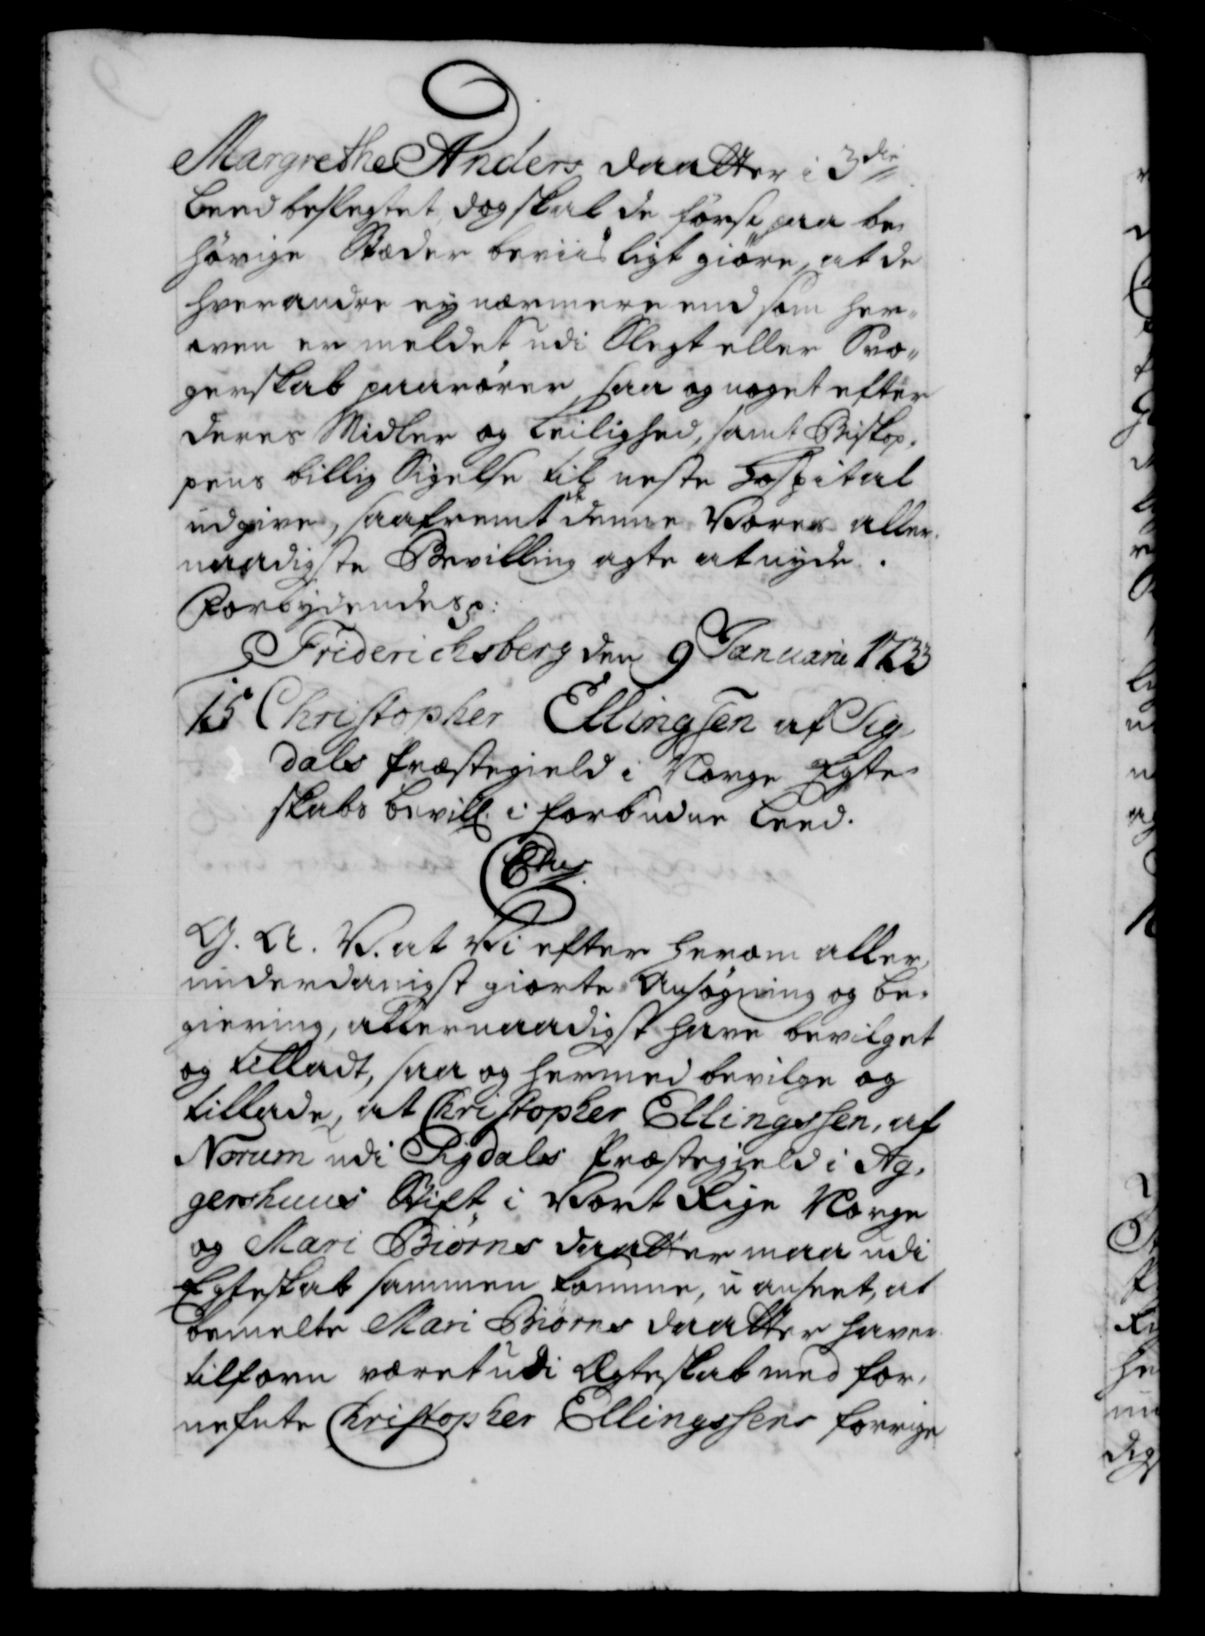 Margrethe Anders daatter i 3die
Leed beslegtet, dog skal de först paa be„
hörige Stæder beviisligt giöre, at de
hverandre ey nærmere end som her„
oven er meldet udi Slegt eller Svo„
gerskab paarörer, saa og noget efter
deres Midler og Leilighed, samt Biskop„
pens billig Sigelse til neste Hospital
udgive, saafremt de denne Vores aller„
naadigste Bevilling agte at nyde.
Forbydendes p:
Friderichsberg den 9 Januarii 1733
15 Christopher Ellingsen af Sig„
dals Præstegield i Norge Egte„
skabs bevill. i forbudne Leed.
C 6tus
G. A. V. at Vi efter herom aller„
underdanigst giorte Ansøgning og be„
giering, allernaadigst have bevilget
og tilladt, saa og hermed bevilge og
tillade, at Christopher Ellingssen, af
Norum udi Sigdals Præstegield i Ag„
gershuus Stift i Vort Rige Norge
og Mari Biørns daatter maa udi
Egteskab sammen komme, u anseet, at
bemelte Mari Biørns daatter haver
tilforn været udi Ægteskab med for„
nefnte Christopher Ellingssens forrige